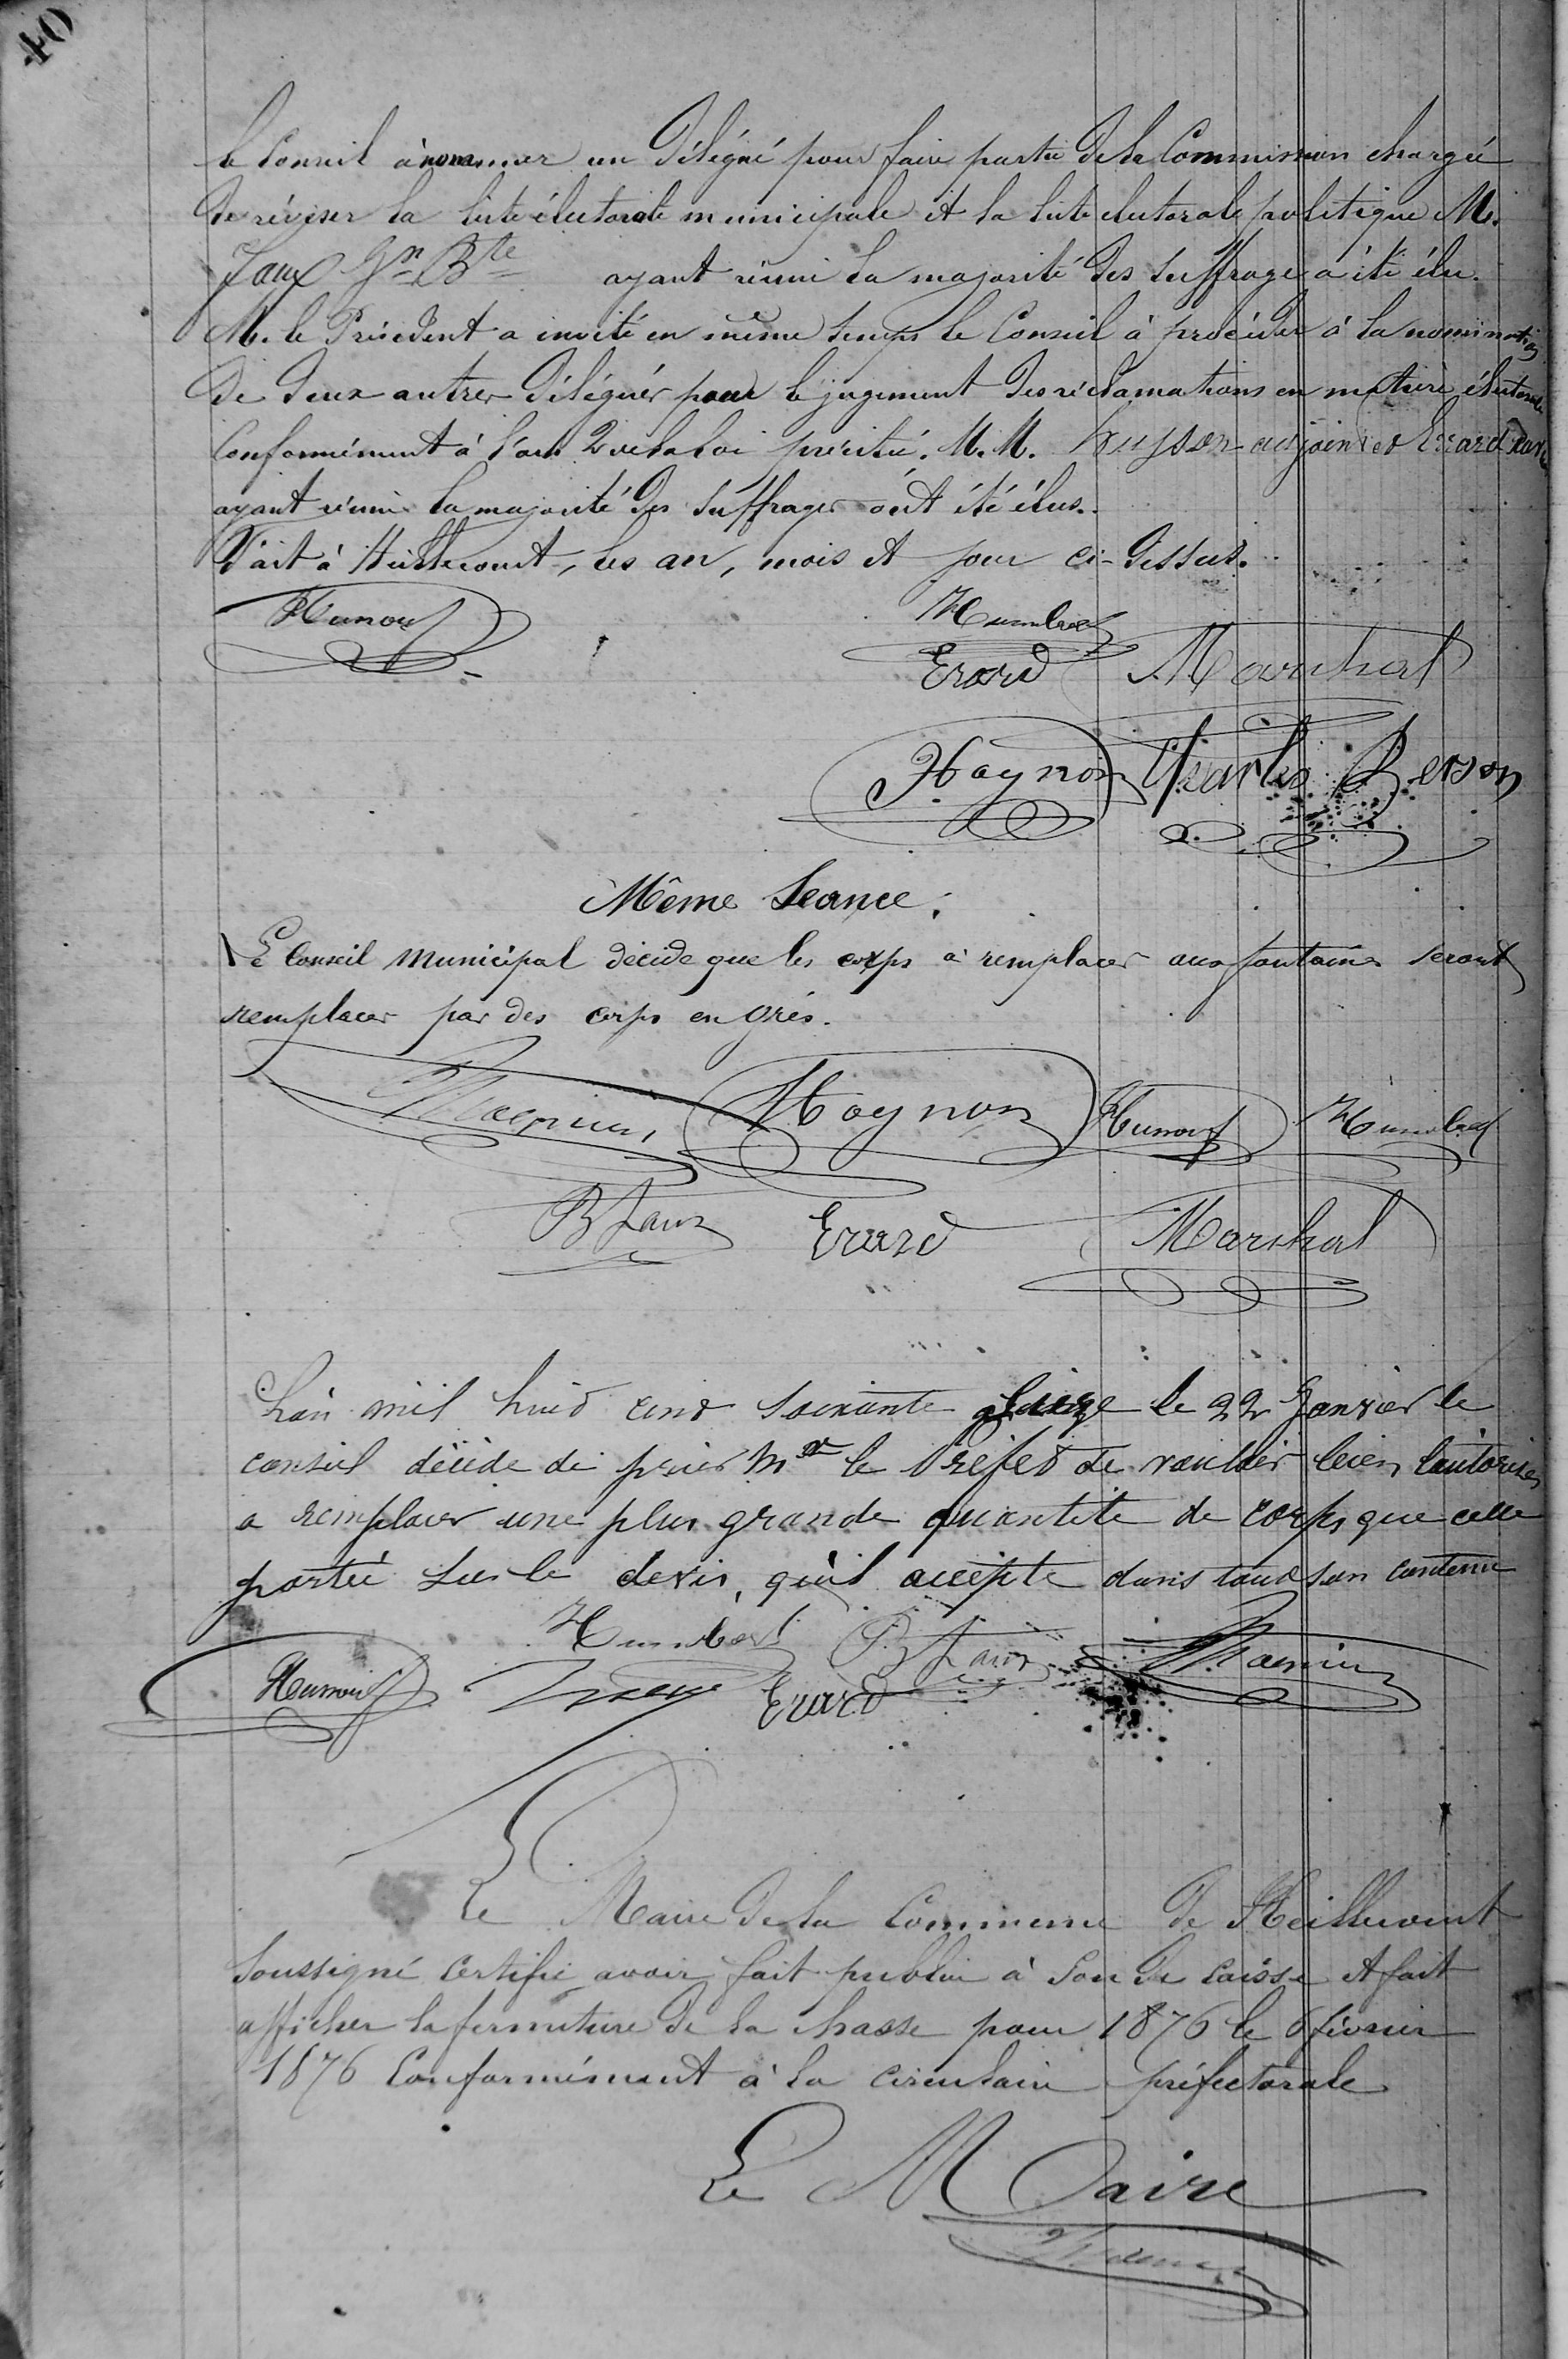 40
le Conseil à nommer un Délégué pour faire partie de la Commission chargée
de réviser la liste électorale municipale et la liste electorale politique M.
Jaux Jn Bte ayant réuni la majorité des suffrage a été élu.
M. le Président a invité en même temps le Conseil à procéder à la nomination
de deux autres Délégués pour le jugement des réclamations en matière électorale
Conformément à l'art 2 de la loi précitée. M. M. adjoint et Erard
ayant réuni la majorité des suffrages ont été élus.
Fait à Heillecourt, les an, mois et jour ci-dessus.
Hunout Humbert
Erard Marchal
Hognon Charles Gerson
Même Séance.
Le Conseil Municipal décide que les corps à remplacer aux fontaines seront
remplacer par des corps en grès.
Hognon Hunout Humbert
B Jaux Erard Marchal
L'an mil huit cent soixante seize le 22 Janvier le
conseil décide de prier Mr le Préfet de vouloir bien l'autoriser
a remplacer une plus grande quantité de corps que celle
portée sur le devis, qu'il accepte dans tout son contenu
Humbert B Jaux
Hunout Erard
Le Maire de la Commune de Heillecourt
Soussigné certifie avoir fait publier à son de caisse et fait
afficher la fermeture de la chasse pour 1876 le 6 février
1876 Conformément à la circulaire préfectorale
Le Maire